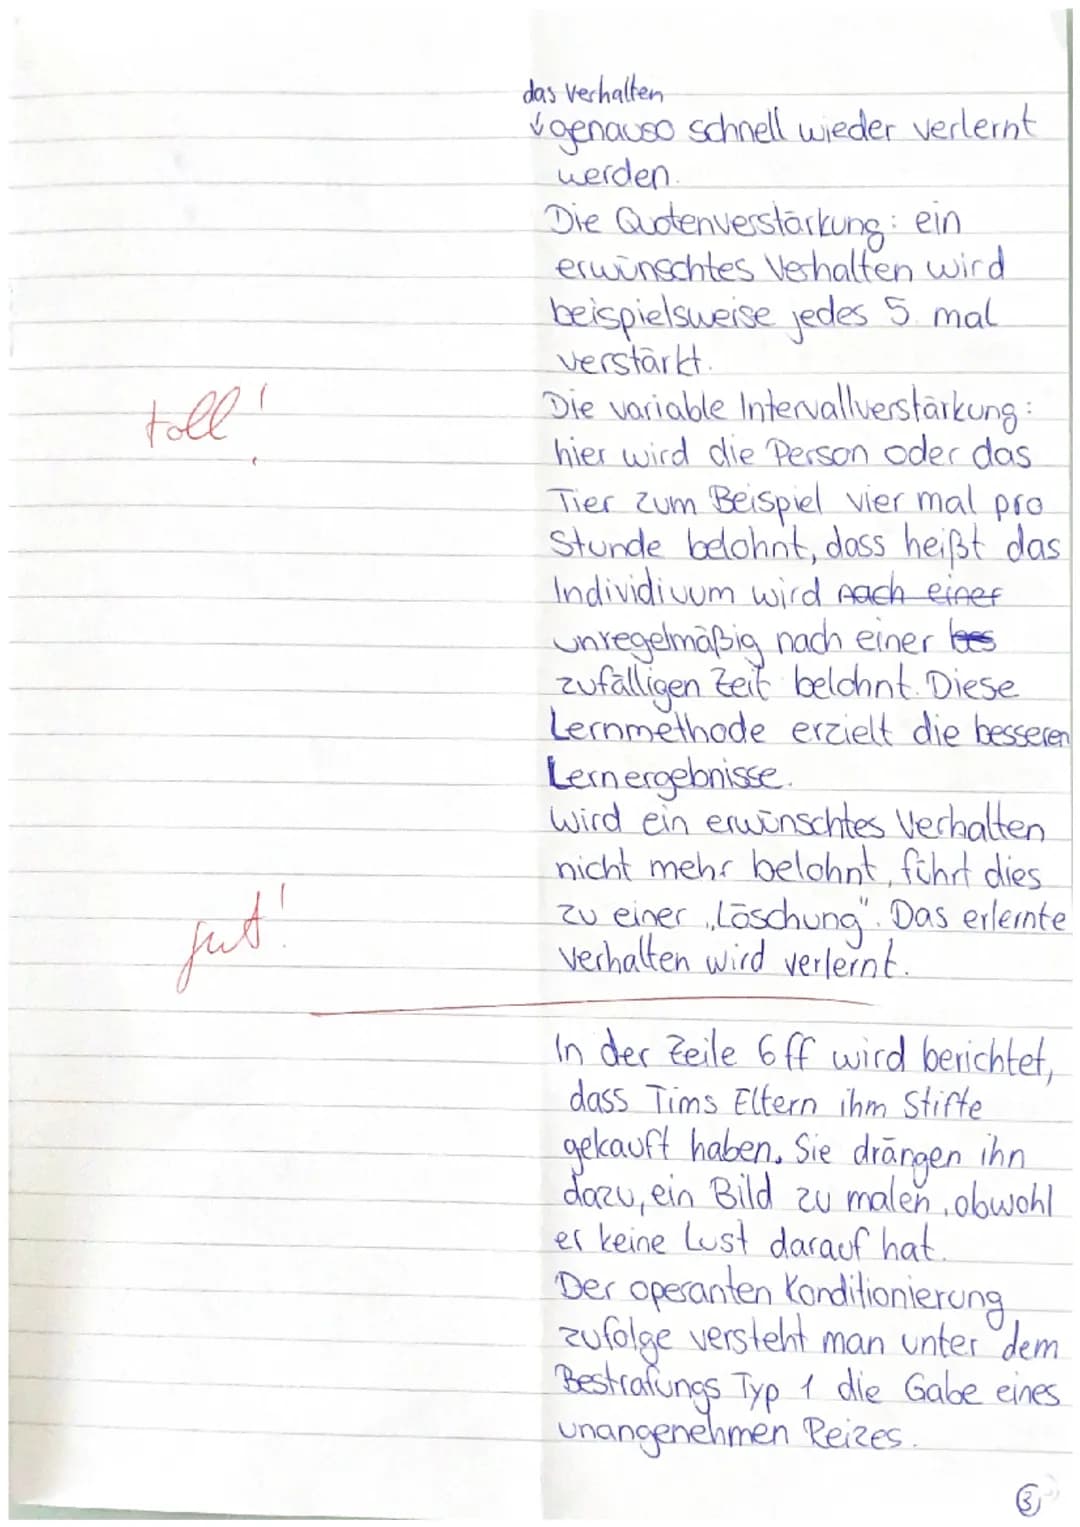 das Verhalten
↓ genauso schnell wieder verlernt
werden.
Die Quotenverstärkung: ein
erwünschtes Verhalten wird
beispielsweise jedes 5. mal
verstärkt.
toll!
Die variable Intervallverstärkung:
hier wird die Person oder das
Tier zum Beispiel vier mal pro
Stunde belohnt, dass heißt das
Individiuum wird nach einer
unregelmäßig nach einer bes
zufälligen Zeit belohnt. Diese
Lernmethode erzielt die besseren
Lernergebnisse.
Wird ein erwünschtes Verhalten
nicht mehr belohnt, führt dies
gut!
zu einer „Löschung". Das erlernte
Verhalten wird verlernt.
In der Zeile 6ff wird berichtet,
dass Tims Eltern ihm Stifte
gekauft haben. Sie drängen ihn
dazu, ein Bild zu malen, obwohl
er keine Lust darauf hat.
Der operanten Konditionierung
zufolge versteht man unter dem
Bestrafungs Typ 1 die Gabe eines
unangenehmen Reizes.
3